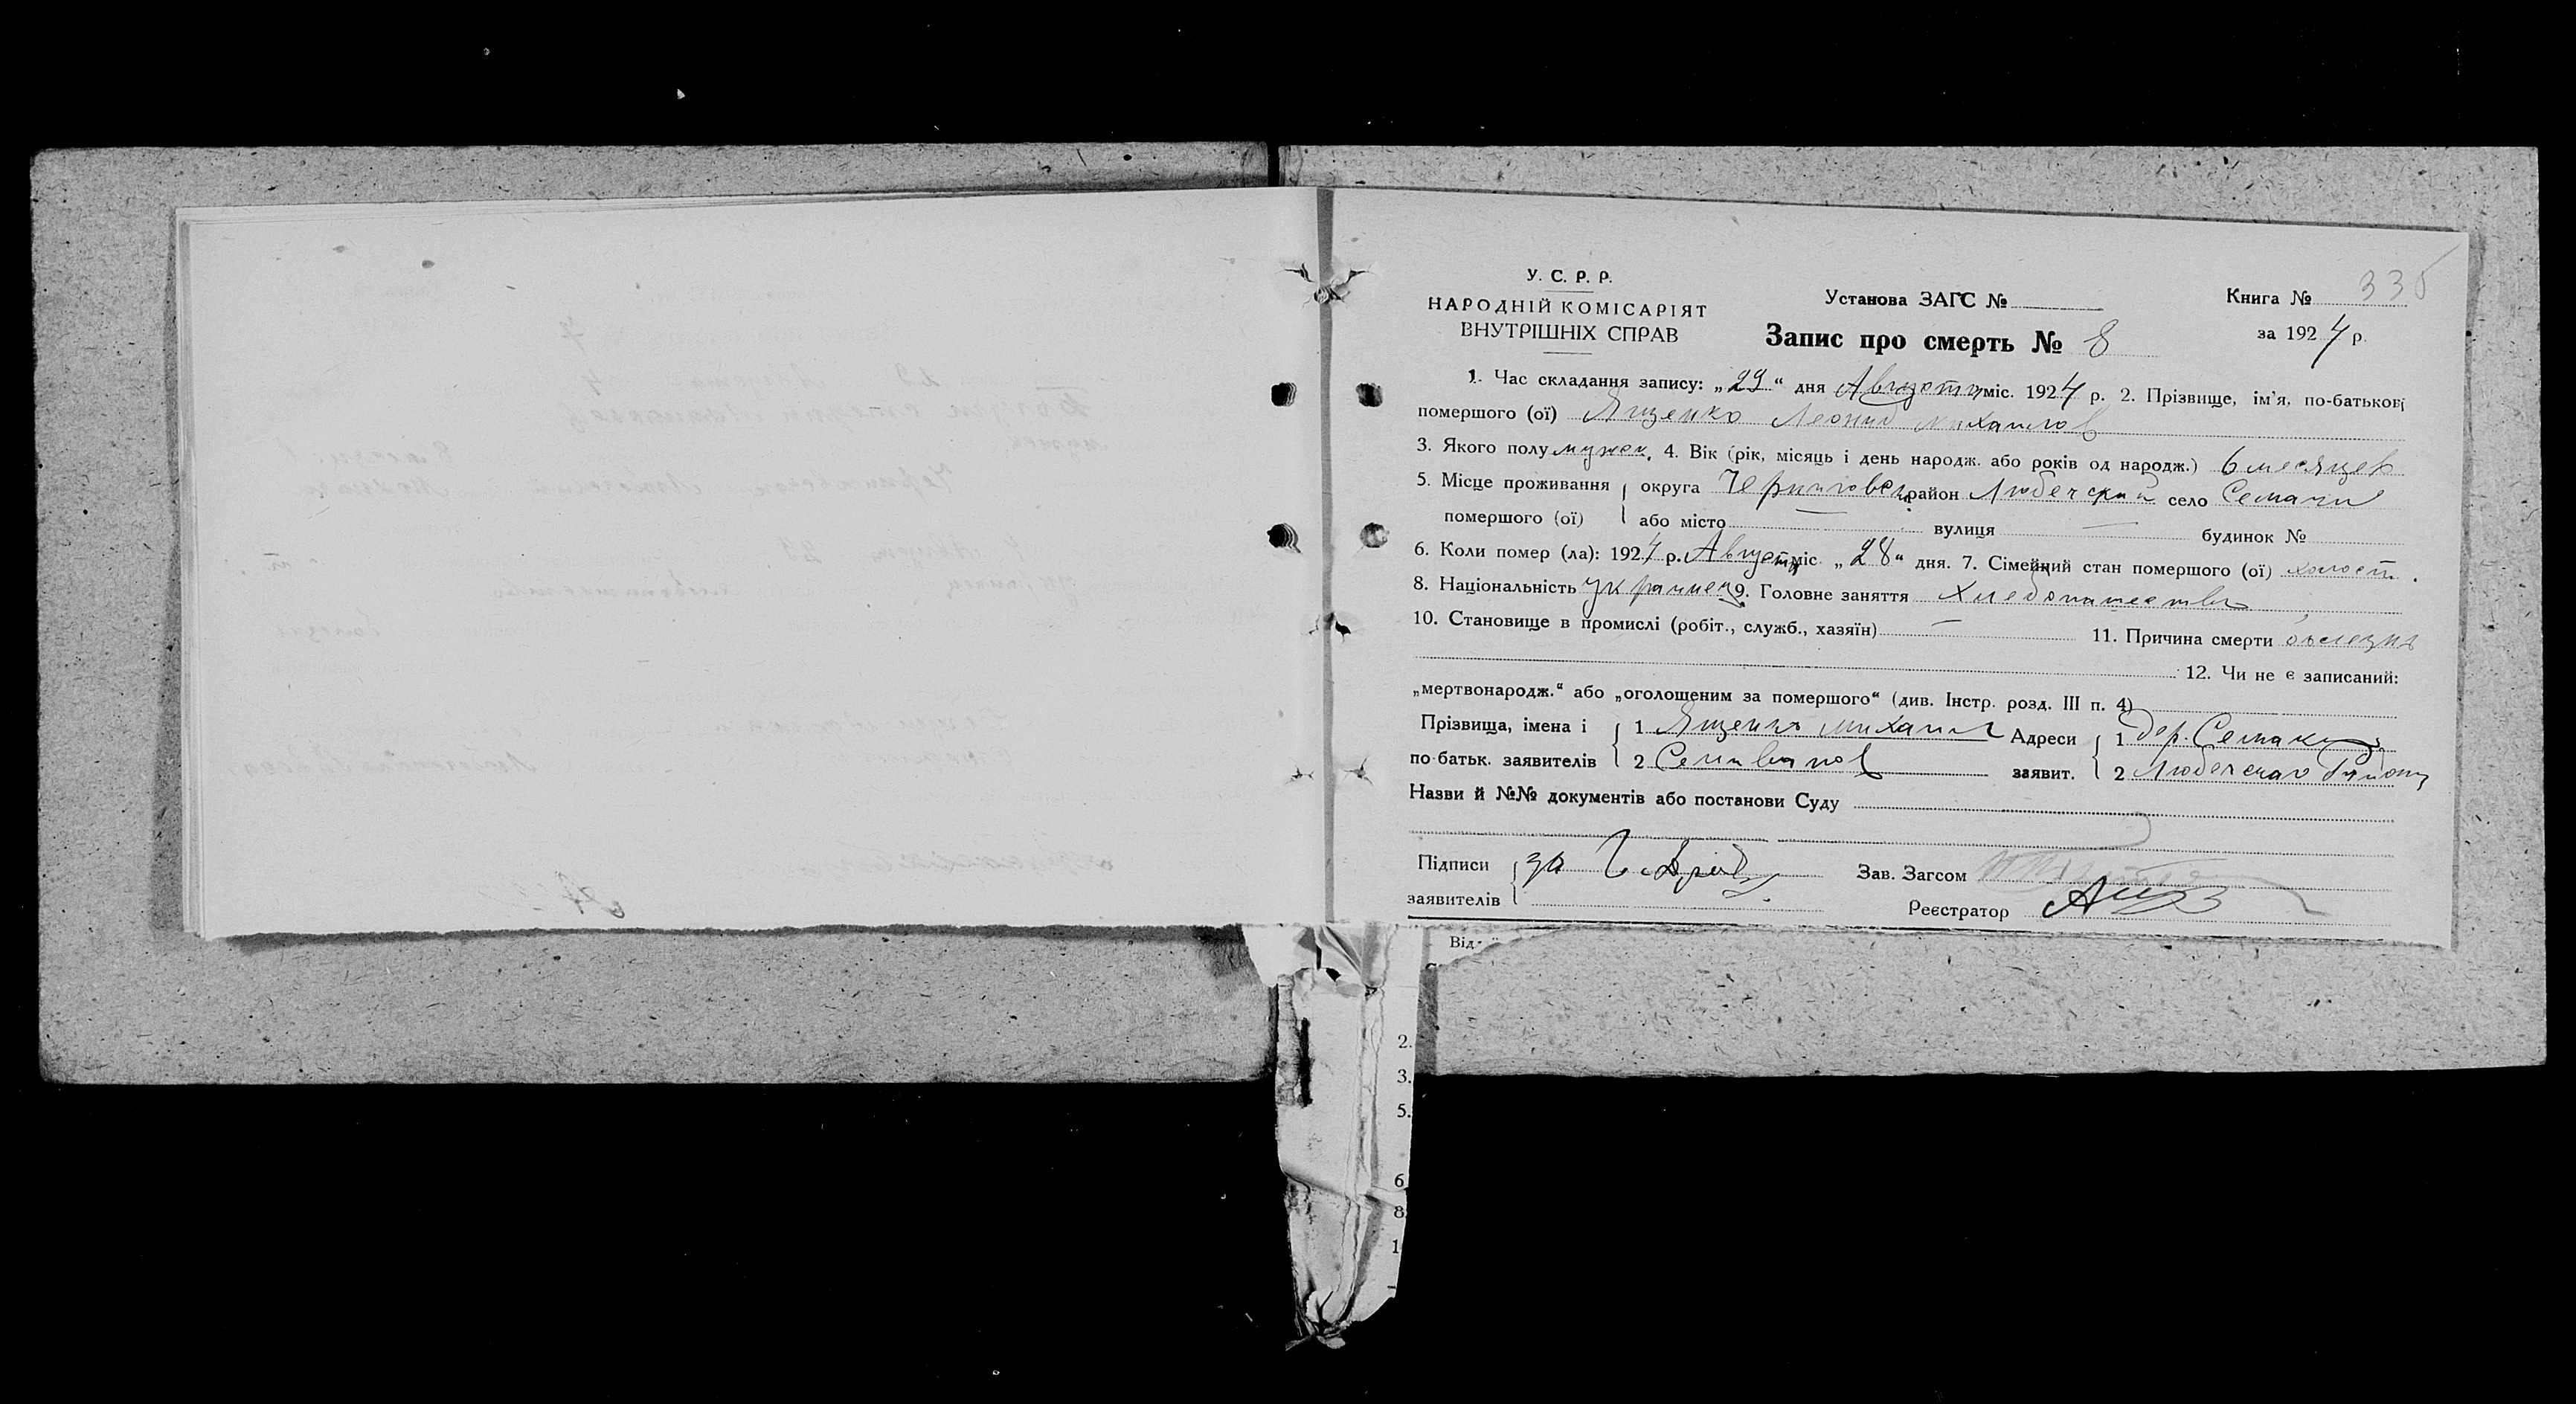 У. С. Р. Р.
НАРОДНІЙ КОМІСАРІЯТ
ВНУТРІШНІХ СПРАВ
Установа ЗАГС №
Запис про смерть № 8
Книга № 335
за 1924 р.
1. Час складання запису: „29“ дня Августа міс. 1924 р. 2. Прізвище, ім'я, по-батькові
помершого (ої) Ященко Леонид Михайлов
3. Якого полу мужск. 4. Вік (рік, місяць і день народж. або років од народж.) 6 месяцев
5. Місце проживання округа Черниговск. район Любечский село Семаки
помершого (ої) або місто — вулиця — будинок №
6. Коли помер (ла): 1924 р. Августа міс. „28“ дня. 7. Сімейний стан помершого (ої) холост.
8. Національність украинец 9. Головне заняття Хлебопашество
10. Становище в промислі (робіт., служб., хазяїн) — 11. Причина смерти
12. Чи не є записаний:
„мертвонародж.“ або „оголошеним за помершого“ (див. Інстр. розд. III п. 4)
Прізвища, імена і 1 Ященко Михаил Адреси 1 дер. Семаки
по-батьк. заявителів 2 Селиванов заявит. 2 Любечскаго Району
Назви й №№ документів або постанови Суду
Підписи за Зав. Загсом
заявителів Реєстратор
Від
2.
3.
5.
6
8
1